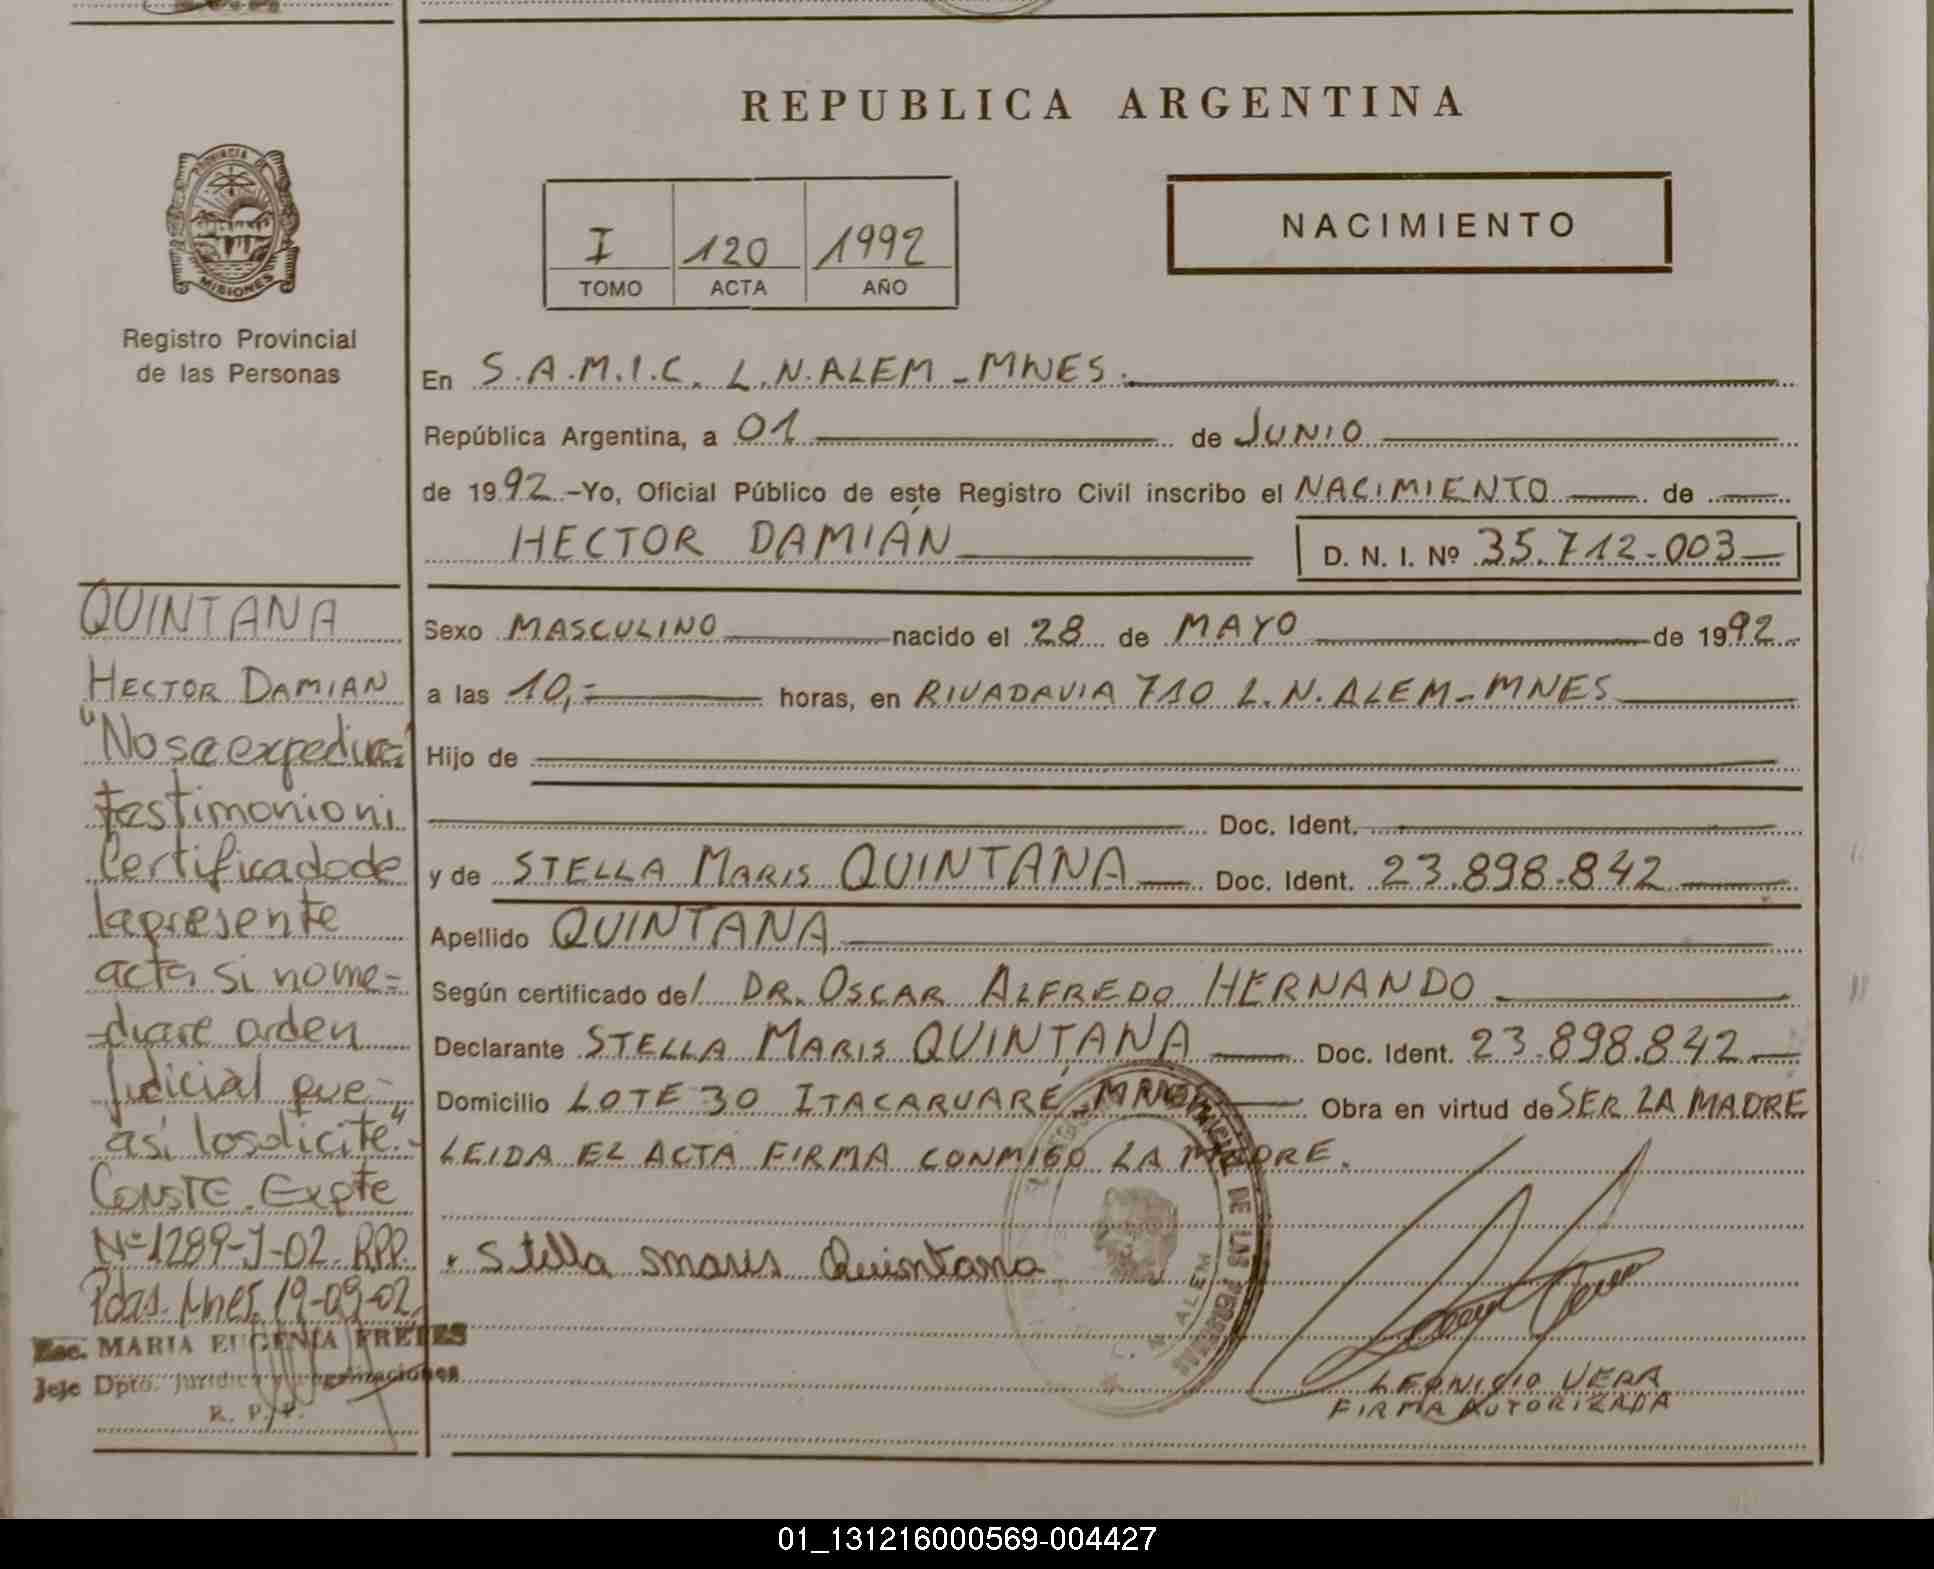 REPUBLICA ARGENTINA
PROVINCIA DE
MISIONES
Registro Provincial
de las Personas
I 120 1992
TOMO ACTA AÑO
NACIMIENTO
En S.A.M.I.C. L.N.ALEM - MNES.
República Argentina, a 01 de JUNIO
de 1992 -Yo, Oficial Público de este Registro Civil inscribo el NACIMIENTO de
HECTOR DAMIÁN D. N. I. Nº 35.712.003
Sexo MASCULINO nacido el 28 de MAYO de 1992
a las 10,= horas, en RIVADAVIA 710 L.N.ALEM-MNES
Hijo de
Doc. Ident.
y de STELLA MARIS QUINTANA Doc. Ident. 23.898.842
Apellido QUINTANA
Según certificado del DR. OSCAR ALFREDO HERNANDO
Declarante STELLA MARIS QUINTANA Doc. Ident. 23.898.842
Domicilio LOTE 30 ITACARUARE, Obra en virtud de SER LA MADRE
LEIDA EL ACTA FIRMA CONMIGO LA MADRE.
Stella maris Quintana
DE LAS PERSONAS
ALEM
LEONICIO VERA
FIRMA AUTORIZADA
QUINTANA
HECTOR DAMIAN
"No se expedira
testimonio ni
Certificado de
la presente
acta si no me-
-diare orden
Judicial que
así lo solicite".-
CONSTE. Expte
Nº 1289-J-02. RPP.
Pdas. Mnes, 19-09-02.
Esc. MARIA EUGENIA FRETES
Jefe Dpto. Jurídico y Legalizaciones
R. P. P.
01_131216000569-004427